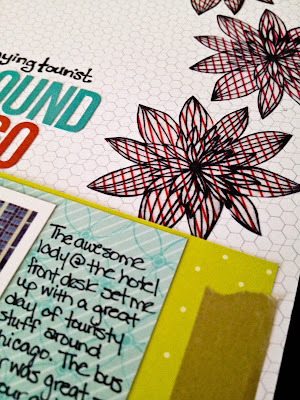 ying tourist
OUND
GO
The awesome
lady @ the hotel
front desk set me
up with a great
day of touristy
stuff around
hicago. The bus
r was great
our